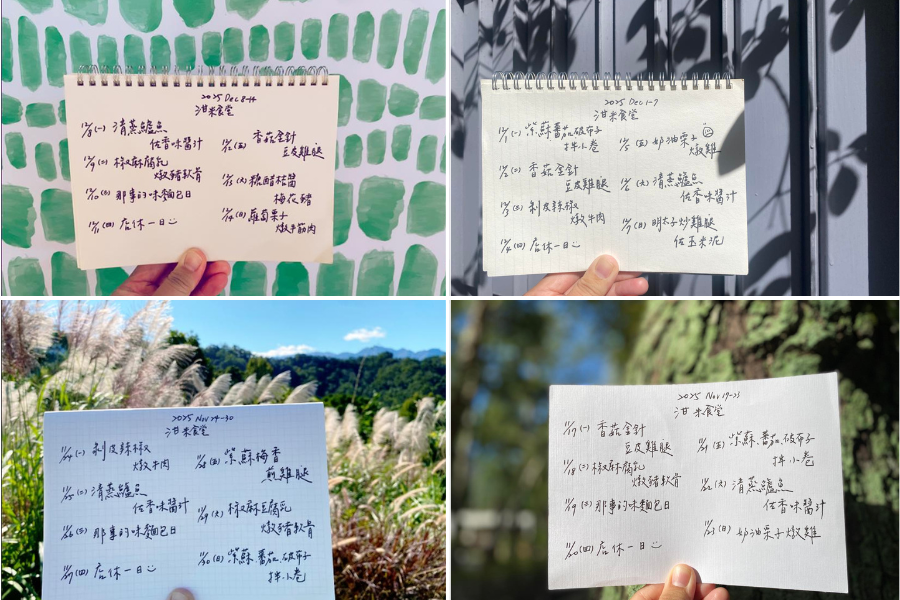 2025 Dec 8-14
泔米食堂
12/8 (一) 清蒸鱸魚
佐香味醬汁
12/9 (二) 椒麻腐乳
燉豬軟骨
12/10 (三) 那事的味麵包日
12/11 (四) 店休一日
12/12 (五) 香菇金針
豆皮雞腿
12/13 (六) 糖醋桔醬
梅花豬
12/14 (日) 蘿蔔栗子
燉牛筋肉
2025 Dec 1-7
泔米食堂
12/1 (一) 紫蘇番茄破布子
拌小卷
12/2 (二) 香菇金針
豆皮雞腿
12/3 (三) 剝皮辣椒
燉牛肉
12/4 (四) 店休一日
12/5 (五) 奶油栗子
燉雞
12/6 (六) 清蒸鱸魚
佐香味醬汁
12/7 (日) 明太子炒雞腿
佐玉米泥
2025 Nov 24-30
泔米食堂
11/24 (一) 剝皮辣椒
燉牛肉
11/25 (二) 清蒸鱸魚
佐香味醬汁
11/26 (三) 那事的味麵包日
11/27 (四) 店休一日
11/28 (五) 紫蘇梅香
煎雞腿
11/29 (六) 椒麻豆腐乳
燉豬軟骨
11/30 (日) 紫蘇番茄破布子
拌小卷
2025 Nov 17-23
泔米食堂
11/17 (一) 香菇金針
豆皮雞腿
11/18 (二) 椒麻腐乳
燉豬軟骨
11/19 (三) 那事的味麵包日
11/20 (四) 店休一日
11/21 (五) 紫蘇番茄破布子
拌小卷
11/22 (六) 清蒸鱸魚
佐香味醬汁
11/23 (日) 奶油栗子燉雞